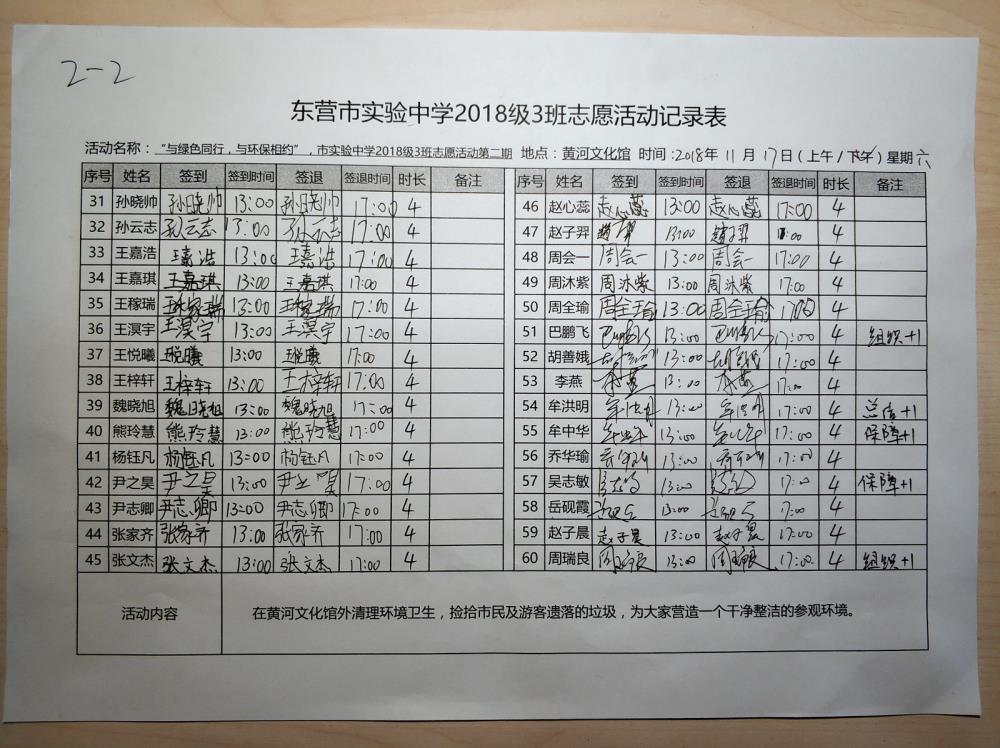 2-2
东营市实验中学2018级3班志愿活动记录表
活动名称： “与绿色同行，与环保相约”，市实验中学2018级3班志愿活动第二期 地点：黄河文化馆 时间：2018年 11月 17日（上午/下午）星期六
序号 姓名 签到 签到时间 签退 签退时间 时长 备注 序号 姓名 签到 签到时间 签退 签退时间 时长 备注
31 孙晓帅 孙晓帅 13:00 孙晓帅 17:00 4 46 赵心蕊 赵心蕊 13:00 赵心蕊 17:00 4
32 孙云志 孙云志 13:00 孙云志 17:00 4 47 赵子羿 13:00 赵子羿 :00 4
33 王嘉浩 王嘉浩 13:00 王嘉浩 17:00 4 48 周会一 周会一 13:00 周会一 17:00 4
34 王嘉琪 王嘉琪 13:00 王嘉琪 17:00 4 49 周沐紫 周沐紫 13:00 周沐紫 17:00 4
35 王稼瑞 王稼瑞 13:00 王稼瑞 17:00 4 50 周全瑜 周全瑜 13:00 周全瑜 17:00 4
36 王溟宇 王溟宇 13:00 王溟宇 17:00 4 51 巴鹏飞 巴鹏飞 13:00 巴鹏飞 17:00 4 组织+1
37 王悦曦 王悦曦 13:00 王悦曦 17:00 4 52 胡善娥 13:00 17:00 4
38 王梓轩 王梓轩 13:00 王梓轩 17:00 4 53 李燕 李燕 13:00 李燕 17:00 4
39 魏晓旭 魏晓旭 13:00 魏晓旭 17:00 4 54 牟洪明 牟洪明 13:00 牟洪明 17:00 4 总结+1
40 熊玲慧 熊玲慧 13:00 熊玲慧 17:00 4 55 牟中华 牟中华 13:00 牟中华 17:00 4 保障+1
41 杨钰凡 杨钰凡 13:00 杨钰凡 17:00 4 56 乔华瑜 13:00 17:00 4
42 尹之昊 尹之昊 13:00 尹之昊 17:00 4 57 吴志敏 13:00 17:00 4 保障+1
43 尹志卿 尹志卿 13:00 尹志卿 17:00 4 58 岳砚霞 13:00 17:00 4
44 张家齐 张家齐 13:00 张家齐 17:00 4 59 赵子晨 赵子晨 13:00 赵子晨 17:00 4
45 张文杰 张文杰 13:00 张文杰 17:00 4 60 周瑞良 周瑞良 13:00 周瑞良 17:00 4 组织+1
活动内容 在黄河文化馆外清理环境卫生，捡拾市民及游客遗落的垃圾，为大家营造一个干净整洁的参观环境。